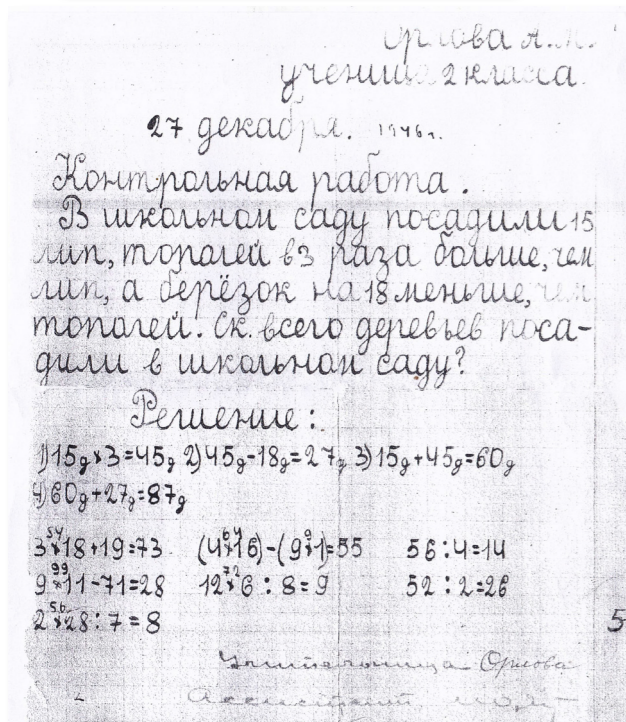 Орлова А.М.
ученица 2 класса.
27 декабря. 1946 г.
Контрольная работа.
В школьном саду посадили 15
лип, тополей в 3 раза больше, чем
лип, а берёзок на 18 меньше, чем
тополей. Ск. всего деревьев поса-
дили в школьном саду?
Решение:
1) 15д × 3 = 45д 2) 45д - 18д = 27д 3) 15д + 45д = 60д
4) 60д + 27д = 87д
54 64 9
3 × 18 + 19 = 73 (4 × 16) - (9 × 1) = 55 56 : 4 = 14
99 72
9 × 11 - 71 = 28 12 × 6 : 8 = 9 52 : 2 = 26
56
2 × 28 : 7 = 8 5
Учительница Орлова
Ассистент